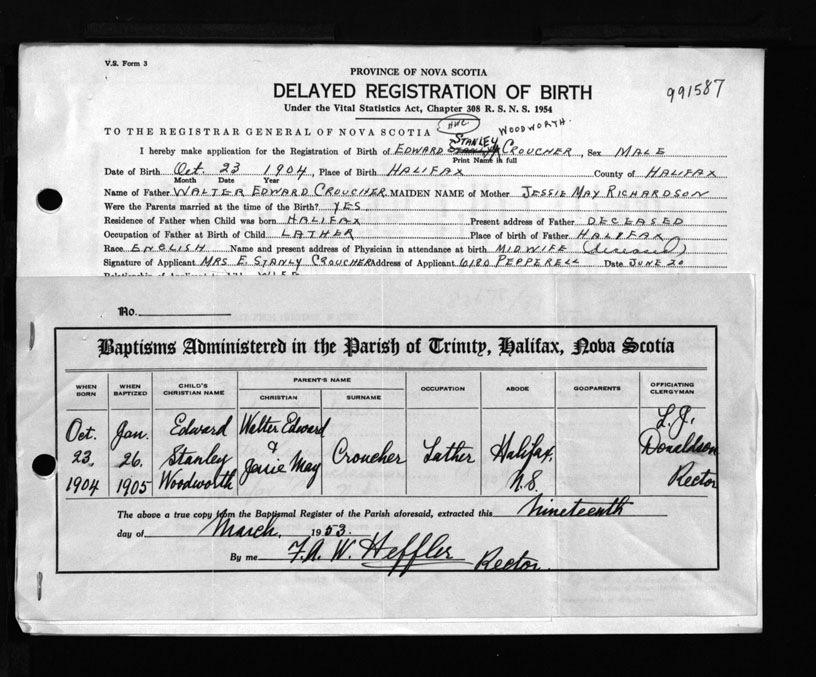 V.S. Form 3
PROVINCE OF NOVA SCOTIA
DELAYED REGISTRATION OF BIRTH
991587
Under the Vital Statistics Act, Chapter 308 R. S. N. S. 1954
TO THE REGISTRAR GENERAL OF NOVA SCOTIA
STANLEY WOODWORTH.
I hereby make application for the Registration of Birth of EDWARD STANLY CROUCHER, Sex MALE
Print Name in full
Date of Birth Oct. 23 1904, Place of Birth HALIFAX County of HALIFAX
Month Date Year
Name of Father WALTER EDWARD CROUCHER MAIDEN NAME of Mother JESSIE MAY RICHARDSON
Were the Parents married at the time of the Birth? YES.
Residence of Father when Child was born HALIFAX Present address of Father DECEASED
Occupation of Father at Birth of Child LATHER Place of birth of Father HALIFAX
Race ENGLISH Name and present address of Physician in attendance at birth MIDWIFE (deceased)
Signature of Applicant MRS E. STANLY CROUCHER Address of Applicant 6180 PEPPERELL Date JUNE 20
No.
Baptisms Administered in the Parish of Trinity, Halifax, Nova Scotia
WHEN BORN WHEN BAPTIZED CHILD'S CHRISTIAN NAME PARENT'S NAME OCCUPATION ABODE GODPARENTS OFFICIATING CLERGYMAN
CHRISTIAN SURNAME
Oct. Jan. Edward Walter Edward L. J.
23, 26, Stanley & Jessie May Croucher Lather Halifax, Donaldson
1904 1905 Woodworth N.S. Rector
The above a true copy from the Baptismal Register of the Parish aforesaid, extracted this nineteenth
day of March, 1953.
By me F. A. W. Heffler Rector.